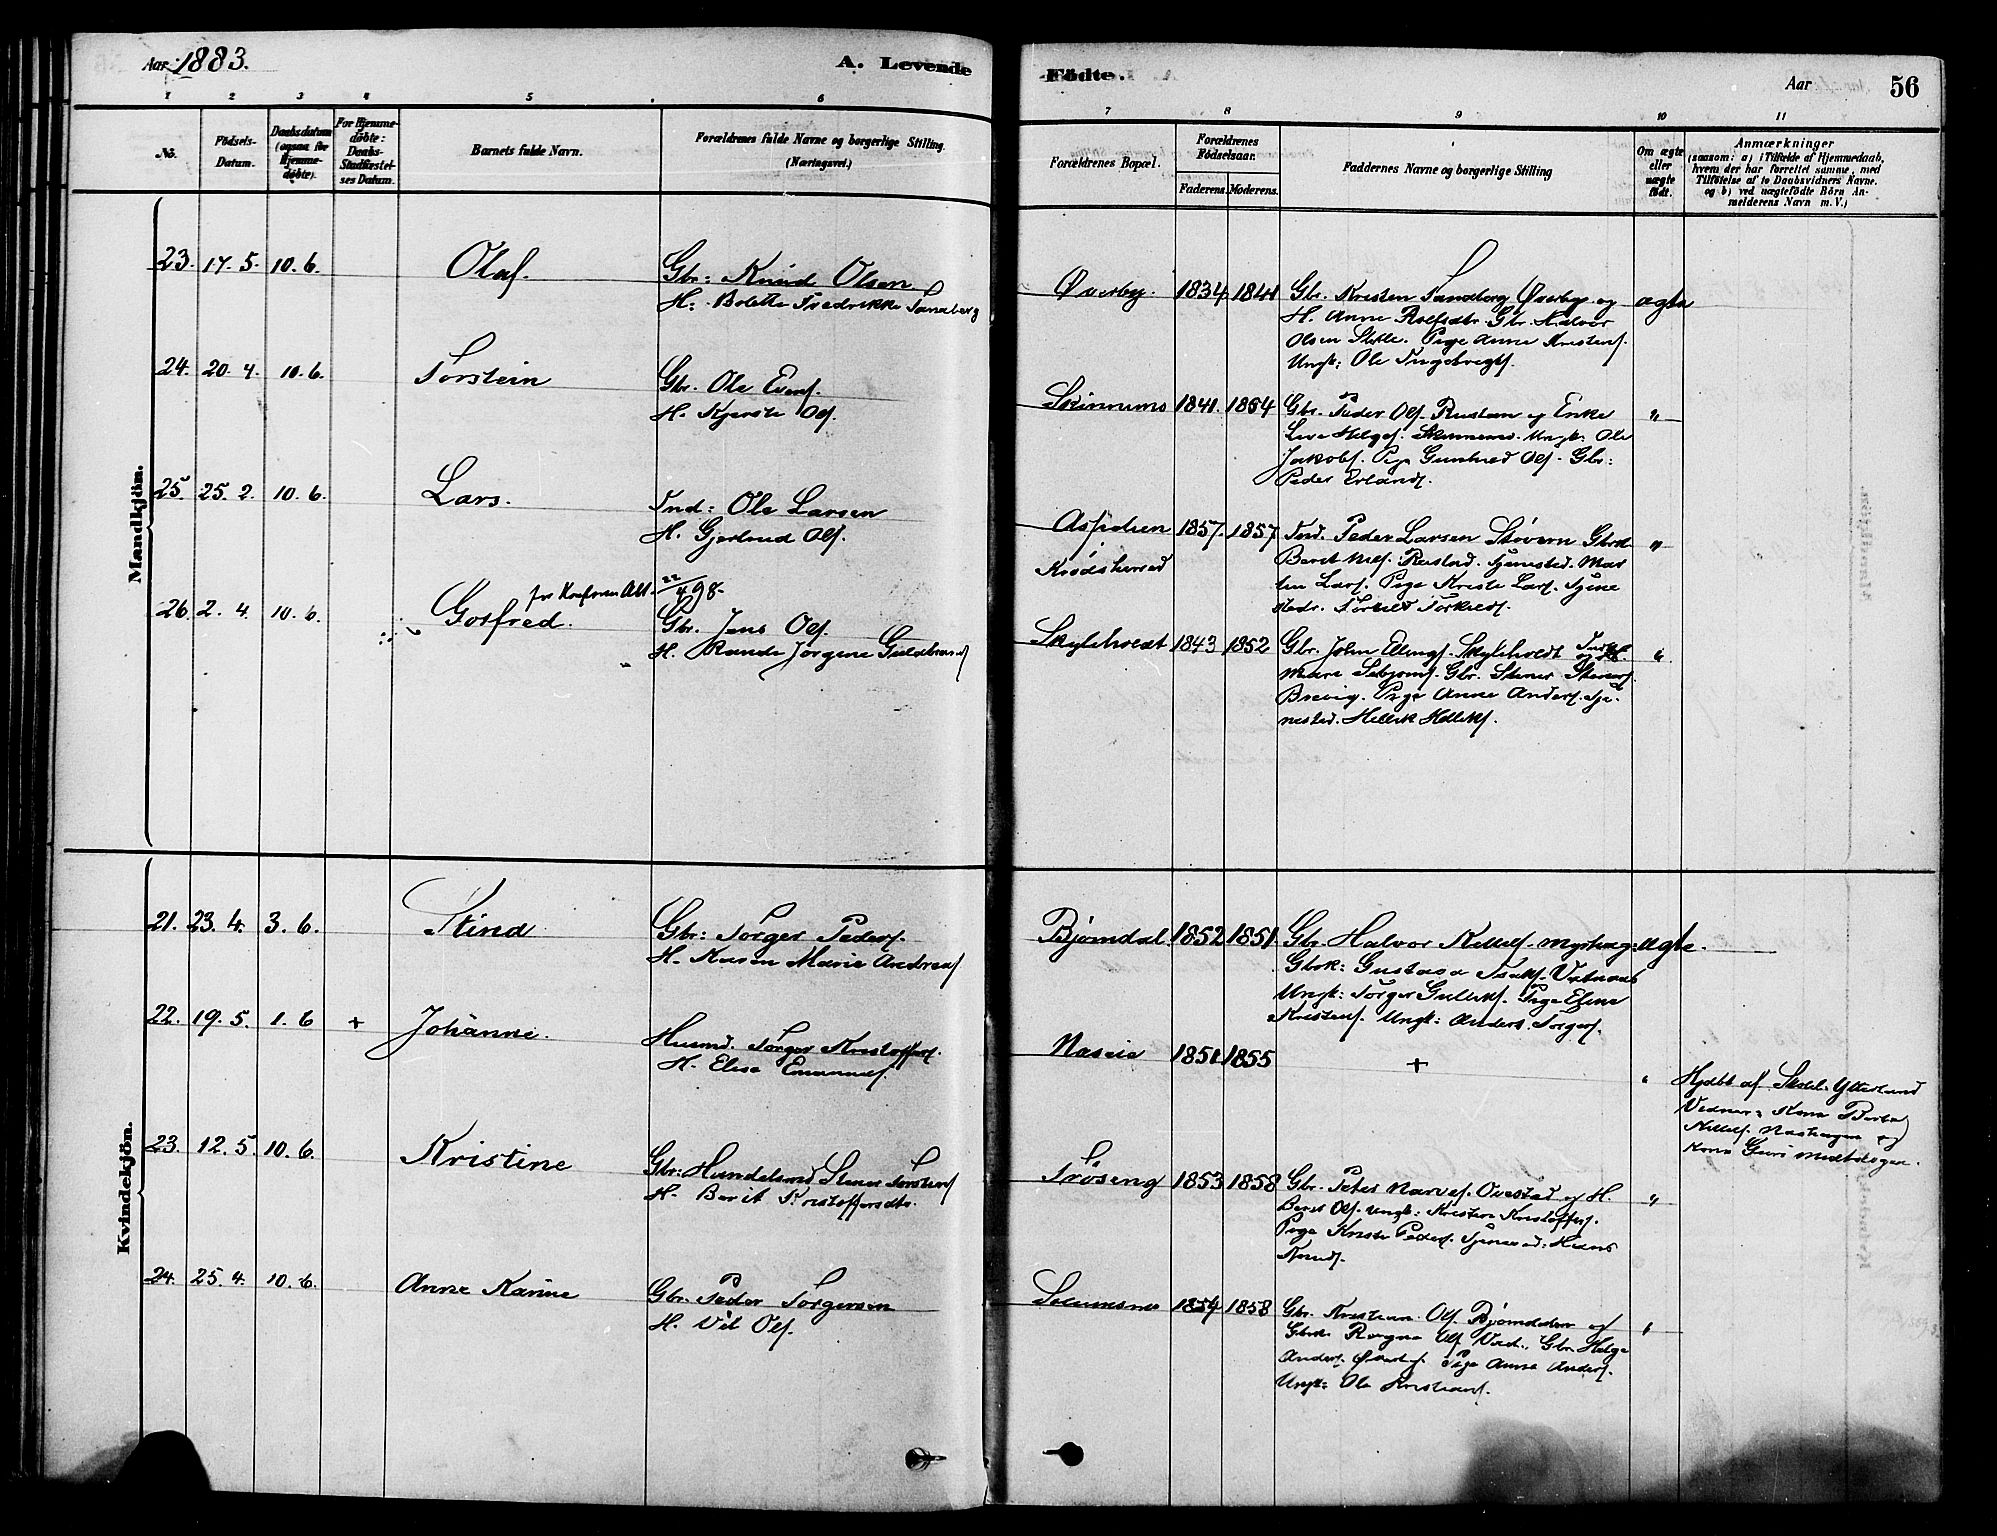 Aar 1883.
A. Levende
Födte.
Aar
56
1
2
3
4
5
6
7
8
9
10
11
No.
Födsels-
Datum.
Daabsdatum
(ogsaa for
Hjemme-
døbte).
For Hjemme-
døbte:
Daabs-
Stadfæstel-
ses Datum.
Barnets fulde Navn.
Forældrenes fulde Navne og borgerlige Stilling.
(Næringsvei.)
Forældrenes Bopæl.
Forældrenes
Födselsaar.
Faderens.
Moderens.
Faddernes Navne og borgerlige Stilling
Om ægte
eller
uægte
födt.
Anmærkninger
(saasom: a) i Tilfælde af Hjemmedaab,
hvem der har forrettet samme, med
Tilföielse af to Daabsvidners Navne.
og b) ved uægtefödte Börn An-
melderens Navn m. V.)
Mandkjön.
23. 17. 5. 10. 6.
Olaf.
Gbr: Knud Olsen
H. Bolette Fredrikke Sandberg
Øverby. 1834 1841
Gbr. Kristen Sandberg Øverby og
H. Anne Rolfsdtr. Gbr. Halvor
Olsen Pige Anne Kristens.
Ungk: Ole Ingebregts.
ægte
24. 20. 4. 10. 6.
Torstein
Gbr. Ole Evens.
H. Kjersti Ols.
1841. 1854
Gbr. Peder Ols. Rustan og Enke
Live Helges. Ungk: Ole
Jakobs. Pige Gunhild Ols. Gbr:
Peder Erlands.
"
25. 25. 2. 10. 6.
Lars.
Ind: Ole Larsen
H. Gjertrud Ols.
Krødsherred
1857. 1857
Ind. Peder Larsen Støvern
Beret Nils. Tjenested. Mar
tin Lars. Pige Kristi Lars. Tjene
stedr. Torkild Torkilds.
"
26. 2. 4. 10. 6.
for Konfirm Att. 22/4 98.
Gotfred.
Gbr. Jens Ols.
H. Rande Jørgine Guldbrands
1843 1852
Gbr. John Ellings.
Gbr. Stener Steners.
Brevig. Pige Anne Anders. Tje-
nested. Hellik Helliks.
"
Kvindekjön.
21. 23. 4. 3. 6.
Stine
Gbr: Torger Peders.
H. Karen Marie Andreas
Bjørndal 1852 1851
Gbr. Halvor Kittils.
Gbrk: Gustava Isaks.
Ungk: Torger Gulliks. Pige Eline
Kristens. Ungk: Anders Torgers.
ægte.
22. 19. 5. 1. 6 +
Johanne.
Husmd. Torger Kristoffers.
H. Elise Emanuels.
1851 1855
+
"
Hjdbt af Skol. Ytterlund
Vidner: Kone Berte
Kittils. og
Kone Guri
23. 12. 5. 10. 6.
Kristine
Gbr: Handelsmd Stener Torstens
H. Berit Kristoffersdtr.
Frøseng 1853 1858
Gbr. Peter Narves. Overstad og H.
Beret Ols. Ungk: Kristian Kristoffers.
Pige Kristi Peders. Hans
Knuds.
"
24. 25. 4. 10. 6.
Anne Karine
Gbr. Peder Torgersen
H. Ols.
1854 1858
Gbr. Kristian Ols. Bjørndalen og
Ragne Ols. Gbr. Helge
Anders. Pige Anne Anders.
Ungk: Ole Kristians.
"